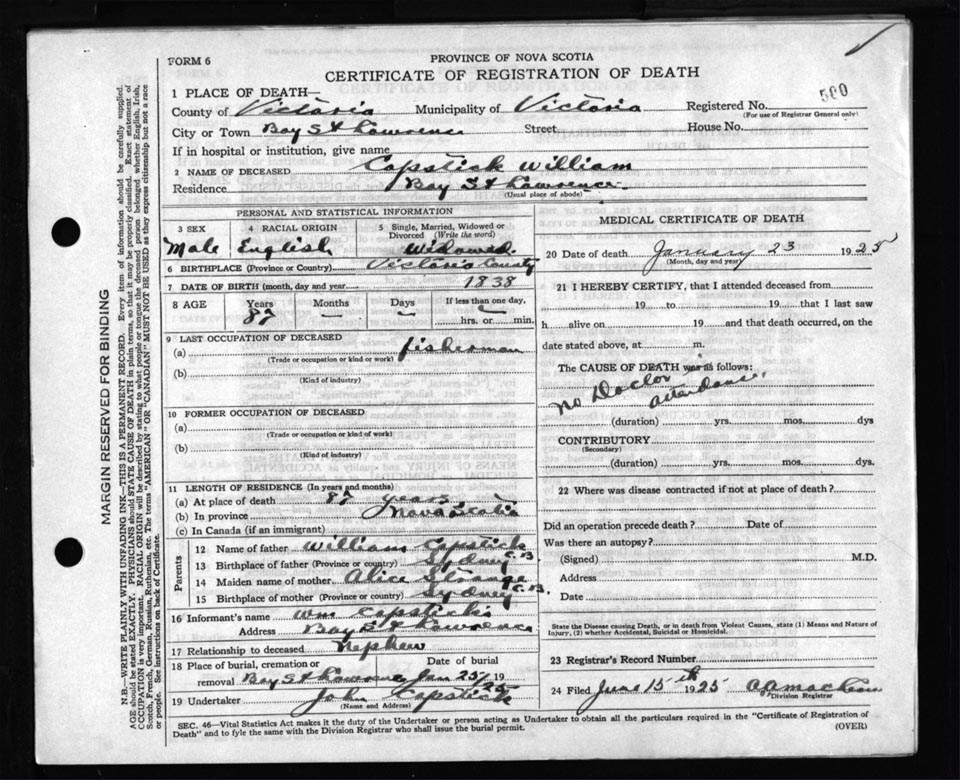 FORM 6
PROVINCE OF NOVA SCOTIA
CERTIFICATE OF REGISTRATION OF DEATH
1 PLACE OF DEATH—
County of Victoria Municipality of Victoria Registered No. 500
(For use of Registrar General only)
City or Town Bay St Lawrence Street House No.
If in hospital or institution, give name
2 NAME OF DECEASED Capstick William
Residence Bay St Lawrence
(Usual place of abode)
PERSONAL AND STATISTICAL INFORMATION
3 SEX 4 RACIAL ORIGIN 5 Single, Married, Widowed or Divorced (Write the word)
Male English Widowed
6 BIRTHPLACE (Province or Country) Victoria County
7 DATE OF BIRTH (month, day and year) 1838
8 AGE Years Months Days If less than one day,
87 — — hrs. or min.
9 LAST OCCUPATION OF DECEASED
(a) fisherman
(Trade or occupation or kind of work)
(b)
(Kind of industry)
10 FORMER OCCUPATION OF DECEASED
(a)
(Trade or occupation or kind of work)
(b)
(Kind of industry)
11 LENGTH OF RESIDENCE (In years and months)
(a) At place of death 87 years
(b) In province Nova Scotia
(c) In Canada (if an immigrant)
Parents
12 Name of father William Capstick
13 Birthplace of father (Province or country) Sydney C.B.
14 Maiden name of mother Alice Strange
15 Birthplace of mother (Province or country) Sydney C.B.
16 Informant's name Wm Capstick
Address Bay St Lawrence
17 Relationship to deceased Nephew
18 Place of burial, cremation or removal Bay St Lawrence Date of burial Jan 25/ 1925
19 Undertaker John Capstick
(Name and Address)
MEDICAL CERTIFICATE OF DEATH
20 Date of death January 23 1925
(Month, day and year)
21 I HEREBY CERTIFY, that I attended deceased from
19 to 19 that I last saw
h alive on 19 and that death occurred, on the
date stated above, at m.
The CAUSE OF DEATH was as follows:
No Doctor in
attendance.
(duration) yrs. mos. dys
CONTRIBUTORY
(Secondary)
(duration) yrs. mos. dys.
22 Where was disease contracted if not at place of death?
Did an operation precede death? Date of
Was there an autopsy?
(Signed) M.D.
Address
Date
State the Disease causing Death, or in death from Violent Causes, state (1) Means and Nature of
Injury, (2) whether Accidental, Suicidal or Homicidal.
23 Registrar's Record Number
24 Filed June 15th 1925
Division Registrar
SEC. 46—Vital Statistics Act makes it the duty of the Undertaker or person acting as Undertaker to obtain all the particulars required in the "Certificate of Registration of
Death" and to fyle the same with the Division Registrar who shall issue the burial permit.
(OVER)
MARGIN RESERVED FOR BINDING
N.B.—WRITE PLAINLY WITH UNFADING INK—THIS IS A PERMANENT RECORD. Every item of information should be carefully supplied.
AGE should be stated EXACTLY. PHYSICIANS should STATE CAUSE OF DEATH in plain terms, so that it may be properly classified. Exact statement of
OCCUPATION is very important. RACIAL ORIGIN will be described by stating to what people or tongue the deceased person belonged whether English, Irish,
Scotch, French, German, Russian, Ruthenian, etc. The terms "AMERICAN" OR "CANADIAN" MUST NOT BE USED as they express citizenship but not a race
or people. See instructions on back of Certificate.